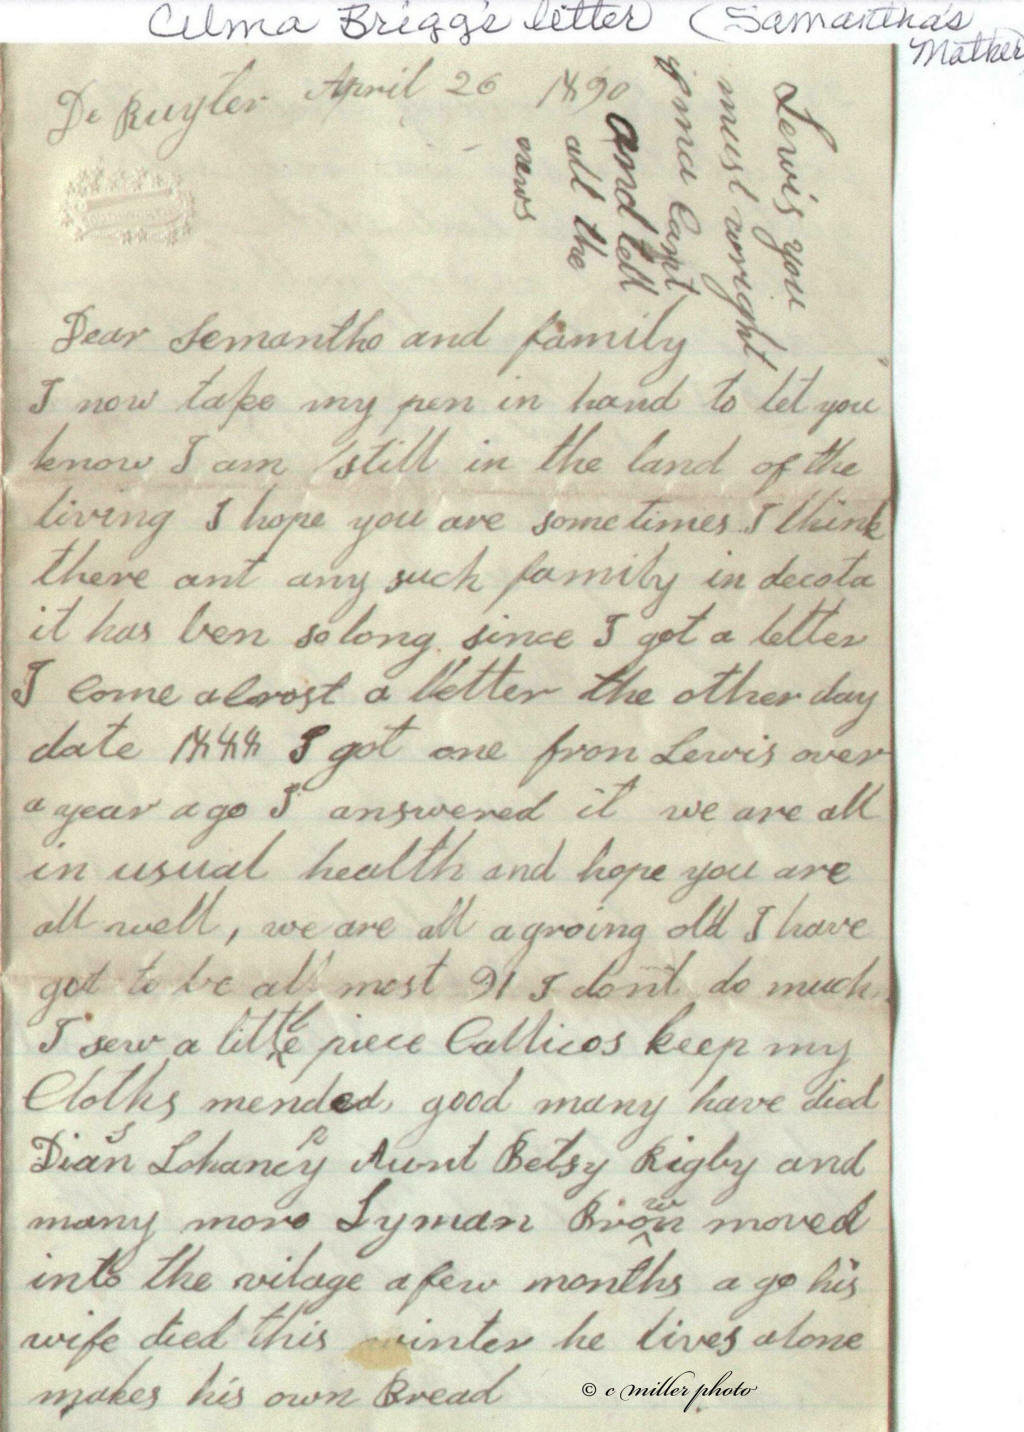 Alma Brigg's letter (Samantha's
Mother)
De Ruyter April 26 1890
Lewis you
must wright
if ma Cant
and tell
all the
news
Dear Semantho and family
I now take my pen in hand to let you
know I am still in the land of the
living I hope you are some times I think
there ant any such family in decota
it has ben so long since I got a letter
I come across t a letter the other day
date 1888 I got one fron Lewis over
a year a go I answered it we are all
in usual health and hope you are
all well, we are all a groing old I have
got to be all most 91 I dont do much
I sew a little piece Callicos keep my
Cloths mended, good many have died
Aunt Betsy Rigby and
many more Lyman Brown moved
into the vilage a few months a go his
wife died this winter he lives alone
makes his own Bread
© c miller photo